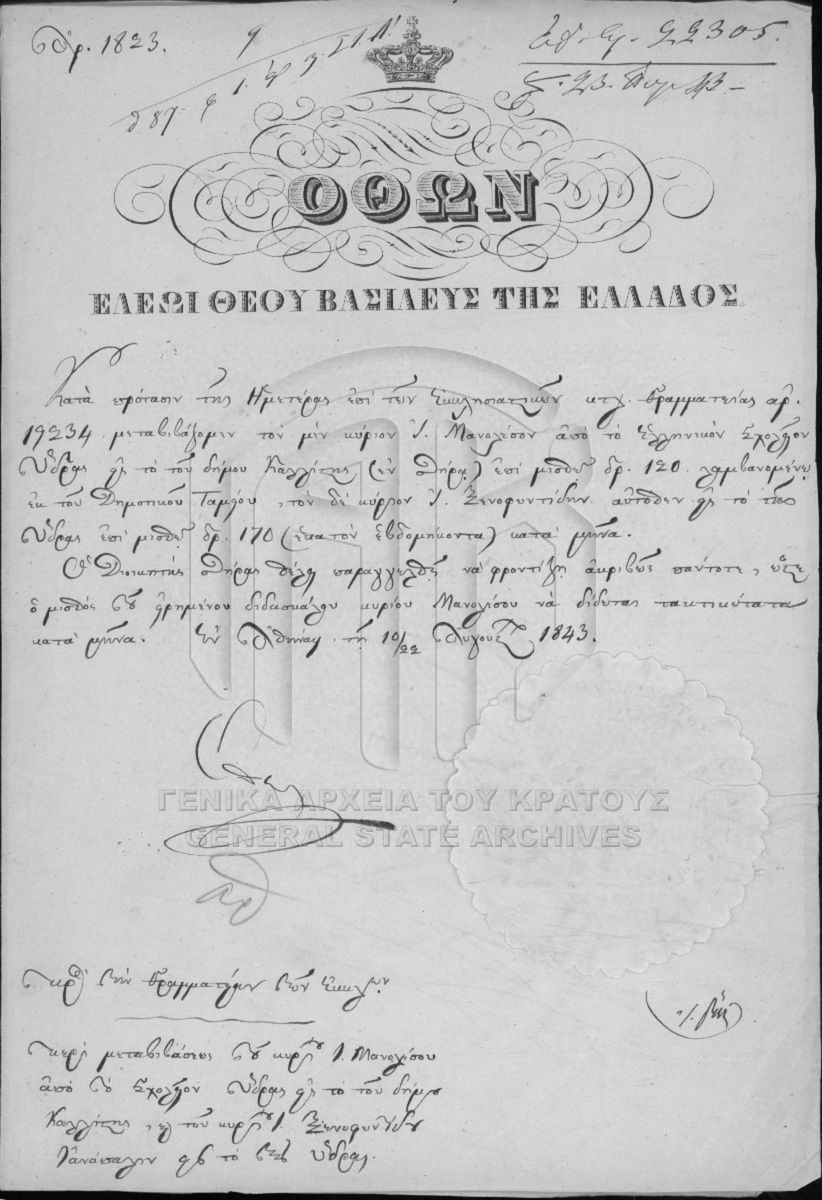 Ἀρ. 1823.
22305.
ΟΘΩΝ
ΕΛΕΩΙ ΘΕΟΥ ΒΑΣΙΛΕΥΣ ΤΗΣ ΕΛΛΑΔΟΣ
Κατὰ πρότασιν τῆς Ἡμετέρας ἐπὶ τῶν Ἐκκλησιαστικῶν κτλ. Γραμματείας ἀρ.
19234 μεταβιβάζομεν τὸν μὲν κύριον Ἰ. Μανολέσον ἀπὸ τὸ Ἑλληνικὸν Σχολεῖον
Ὕδρας εἰς τὸ τοῦ δήμου Καλλίστης (ἐν Θήρᾳ) ἐπὶ μισθῷ δρ. 120 λαμβανομένῳ
ἐκ τοῦ Δημοτικοῦ Ταμείου, τὸν δὲ κύριον Ἰ. Ξενοφωντίδην αὐτόθεν εἰς τὸ τῆς
Ὕδρας ἐπὶ μισθῷ δρ. 170 (ἑκατὸν ἑβδομήκοντα) κατὰ μῆνα.
Ὁ Διοικητὴς Θήρας θέλει παραγγελθῆ νὰ φροντίζῃ ἀκριβῶς πάντοτε, ὥστε
ὁ μισθὸς τοῦ εἰρημένου διδασκάλου κυρίου Μανολέσου νὰ δίδεται τακτικώτατα
κατὰ μῆνα. Ἐν Ἀθήναις τῇ 10/22 Αὐγούστου 1843.
ΓΕΝΙΚΑ ΑΡΧΕΙΑ ΤΟΥ ΚΡΑΤΟΥΣ
GENERAL STATE ARCHIVES
Πρὸς τὴν Γραμματείαν τῶν Ἐκκλ.ων
Περὶ μεταβιβάσεως τοῦ κυρίου Ἰ. Μανολέσου
ἀπὸ τὸ Σχολεῖον Ὕδρας εἰς τὸ τοῦ δήμου
Καλλίστης, καὶ τοῦ κυρίου Ἰ. Ξενοφωντίδου
τἀνάπαλιν εἰς τὸ τῆς Ὕδρας.